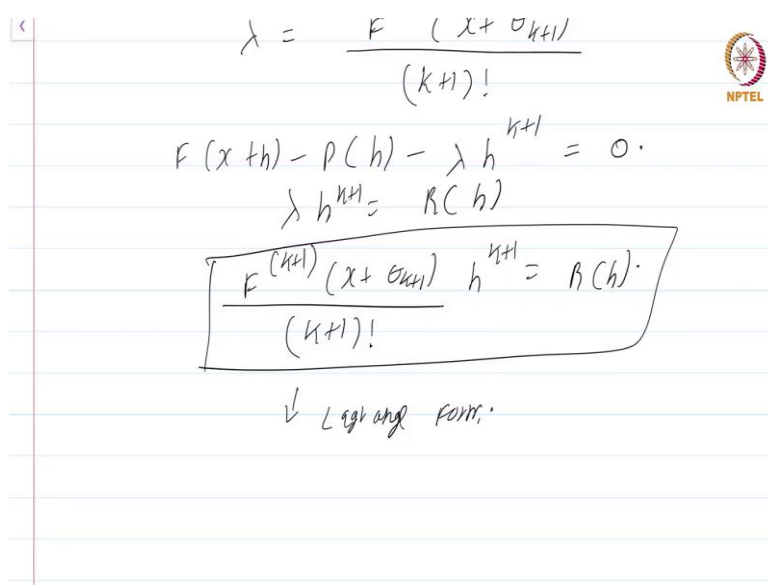 λ = F (x + θ_{k+1}) / (k+1)!
NPTEL
F(x+h) - P(h) - λ h^{k+1} = 0.
λ h^{k+1} = R(h)
F^{(k+1)} (x + θ_{k+1}) / (k+1)! h^{k+1} = R(h).
↓ Lagrange Form.